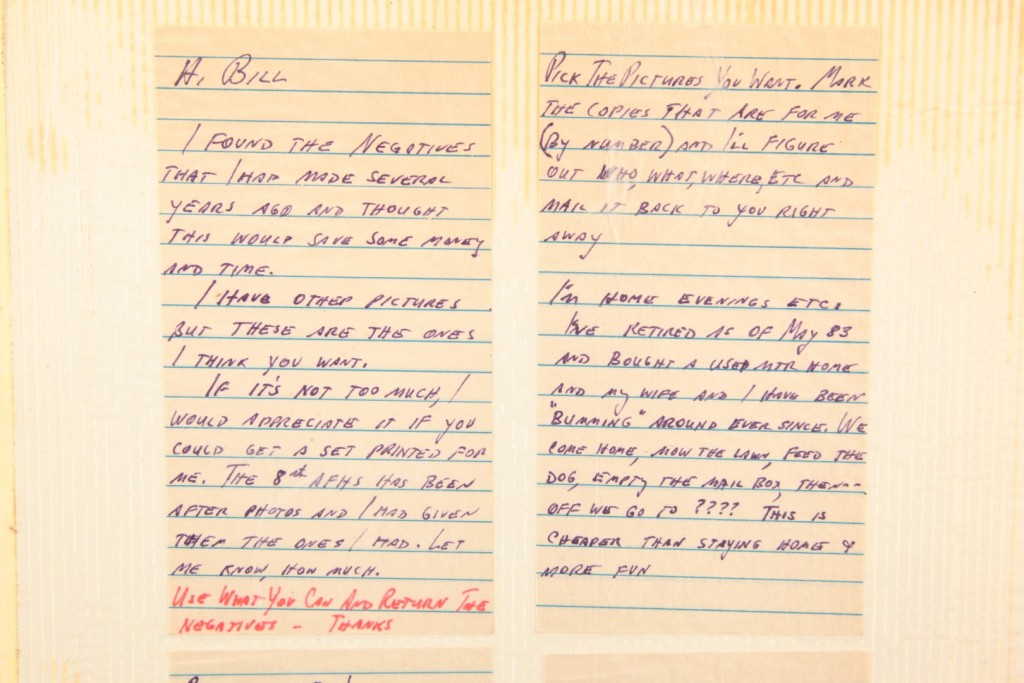 Hi Bill
I found the negatives
that I had made several
years ago and thought
this would save some money
and time.
I have other pictures
but these are the ones
I think you want.
If it's not too much, I
would appreciate it if you
could get a set printed for
me. The 8st AFHS has been
after photos and I had given
them the ones I had. Let
me know, how much.
Use What You Can And Return The
Negatives - Thanks
Pick The Pictures You Want. Mark
the copies that are for me
(By number) and I'll figure
out who, what, where, etc and
mail it back to you right
away
I'm home evenings etc.
I've retired as of May 83
and bought a used mtr home
and my wife and I have been
"Bumming" around ever since. We
come home, mow the lawn, feed the
dog, empty the mail box, then--
off we go to ???? This is
cheaper than staying home &
more fun